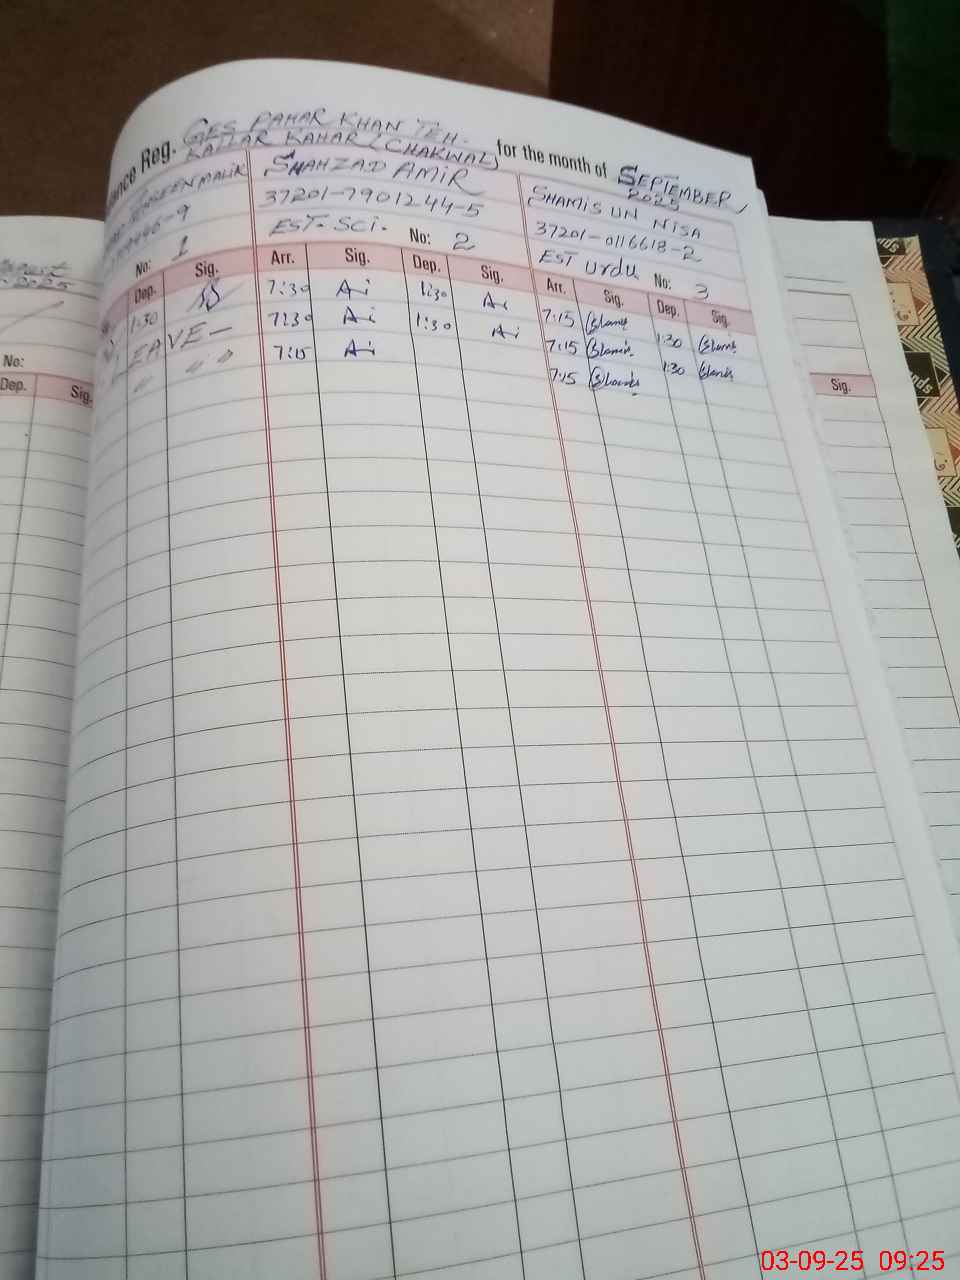 ance Reg. GES PAHAR KHAN TEH.
KALLAR KAHAR (CHAKWAL)
for the month of SEPTEMBER,
2025
MALIK
No: 1
SHAHZAD AMIR
37201-7901244-5
EST. SCI. No: 2
SHAMIS UN NISA
37201-0116618-2
EST Urdu No: 3
Dep. Sig. Arr. Sig. Dep. Sig. Arr. Sig. Dep. Sig.
1:30 7:30 1:30 7:15 1:30
LEAVE- 7:30 1:30 7:15 1:30
" " 7:15 7:15
August
2025
No:
Dep. Sig.
Sig.
03-09-25 09:25